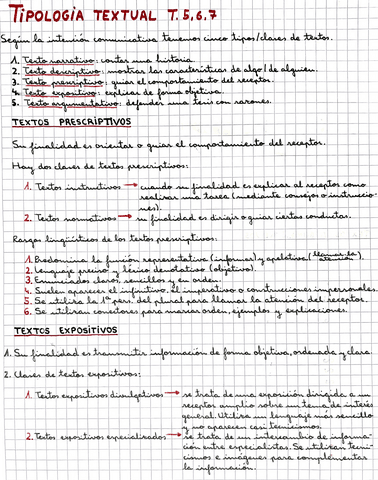 TIPOLOGÍA TEXTUAL T.5,6,7
Según la intención comunicativa tenemos cinco tipos/clases de textos.
1. Texto narrativo: contar una historia.
2. Texto descriptivo: mostrar las características de algo/de alguien.
3. Texto prescriptivo: guiar el comportamiento del receptor.
4. Texto expositivo: explicar de forma objetiva.
5. Texto argumentativo: defender una tesis con razones.
TEXTOS PRESCRIPTIVOS
Su finalidad es orientar o guiar el comportamiento del receptor.
Hay dos clases de textos prescriptivos:
1. Textos instructivos → cuando su finalidad es explicar al receptor como
realizar una tarea (mediante consejos o instruccio-
nes).
2. Textos normativos → su finalidad es dirigir o guiar ciertas conductas.
Rasgos lingüísticos de los textos prescriptivos:
1. Predomina la función representativa (informar) y apelativa (llamar la atención).
2. Lenguaje preciso y léxico denotativo (objetivo).
3. Enunciados claros, sencillos y en orden.
4. Suelen aparecer el infinitivo. El imperativo o construcciones impersonales.
5. Se utiliza la 1ª pers. del plural para llamar la atención del receptor.
6. Se utilizan conectores para marcar orden, ejemplos y explicaciones.
TEXTOS EXPOSITIVOS
1. Su finalidad es transmitir información de forma objetiva, ordenada y clara.
2. Clases de textos expositivos:
1. Textos expositivos divulgativos → se trata de una exposición dirigida a un
receptor amplio sobre un tema de interés
general. Utiliza un lenguaje más sencillo
y no aparecen casi tecnicismos.
2. Textos expositivos especializados → se trata de un intercambio de informa-
ción entre especialistas. Se utilizan tecni-
cismos e imágenes para complementar
la información.